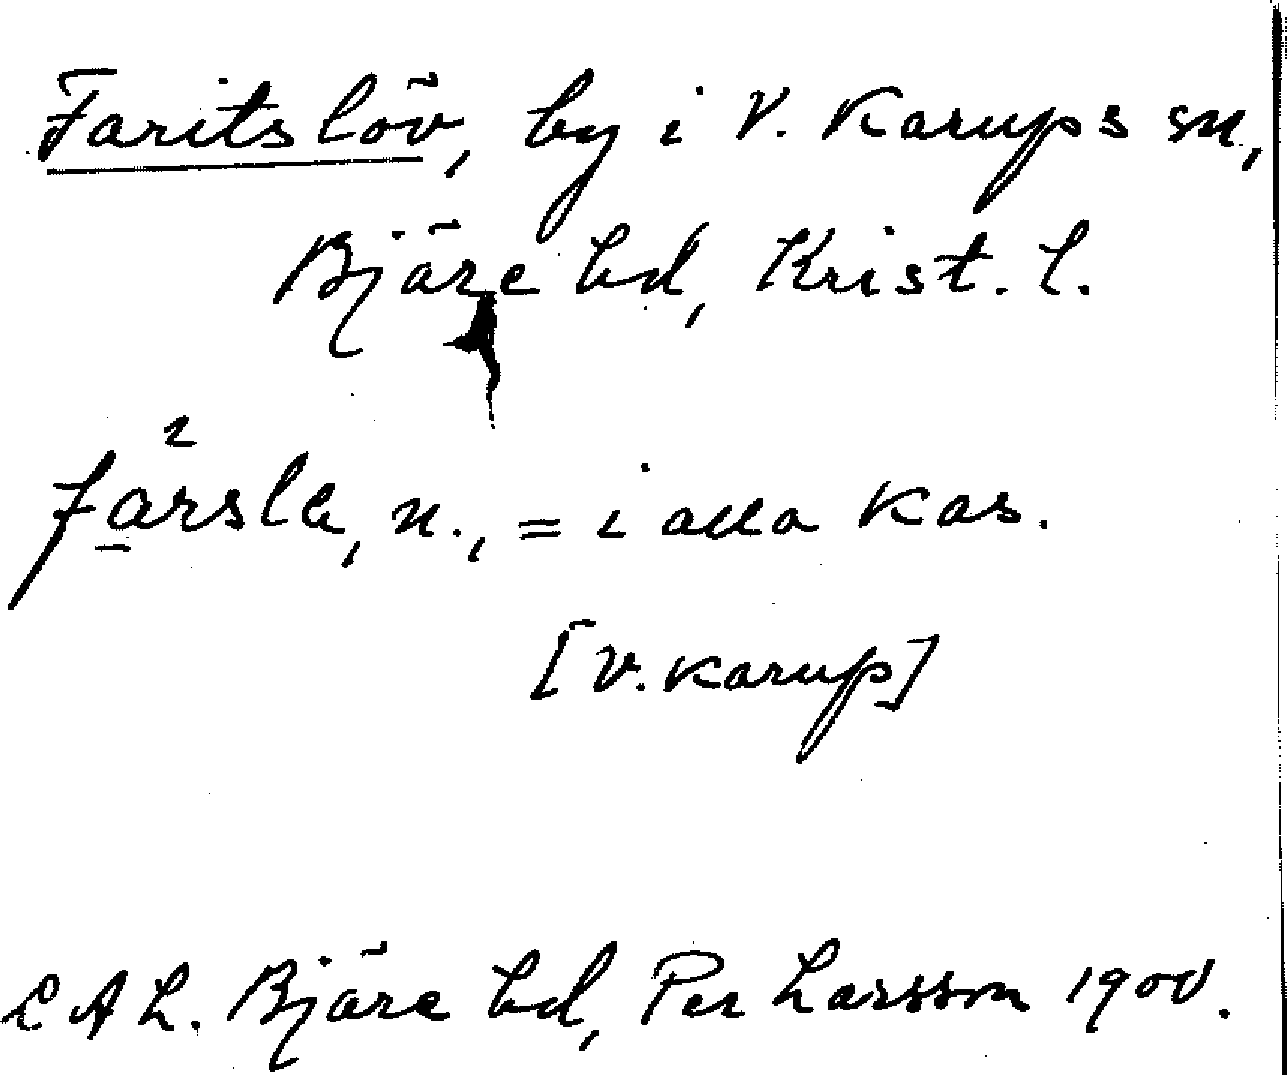 Faritslöv, by i V. Karups sn,
Bjäre hd, Krist. l.
2
farsla, n., = i alla kas.
[V. Karup]
LAL. Bjäre hd, Per Larsson 1900.